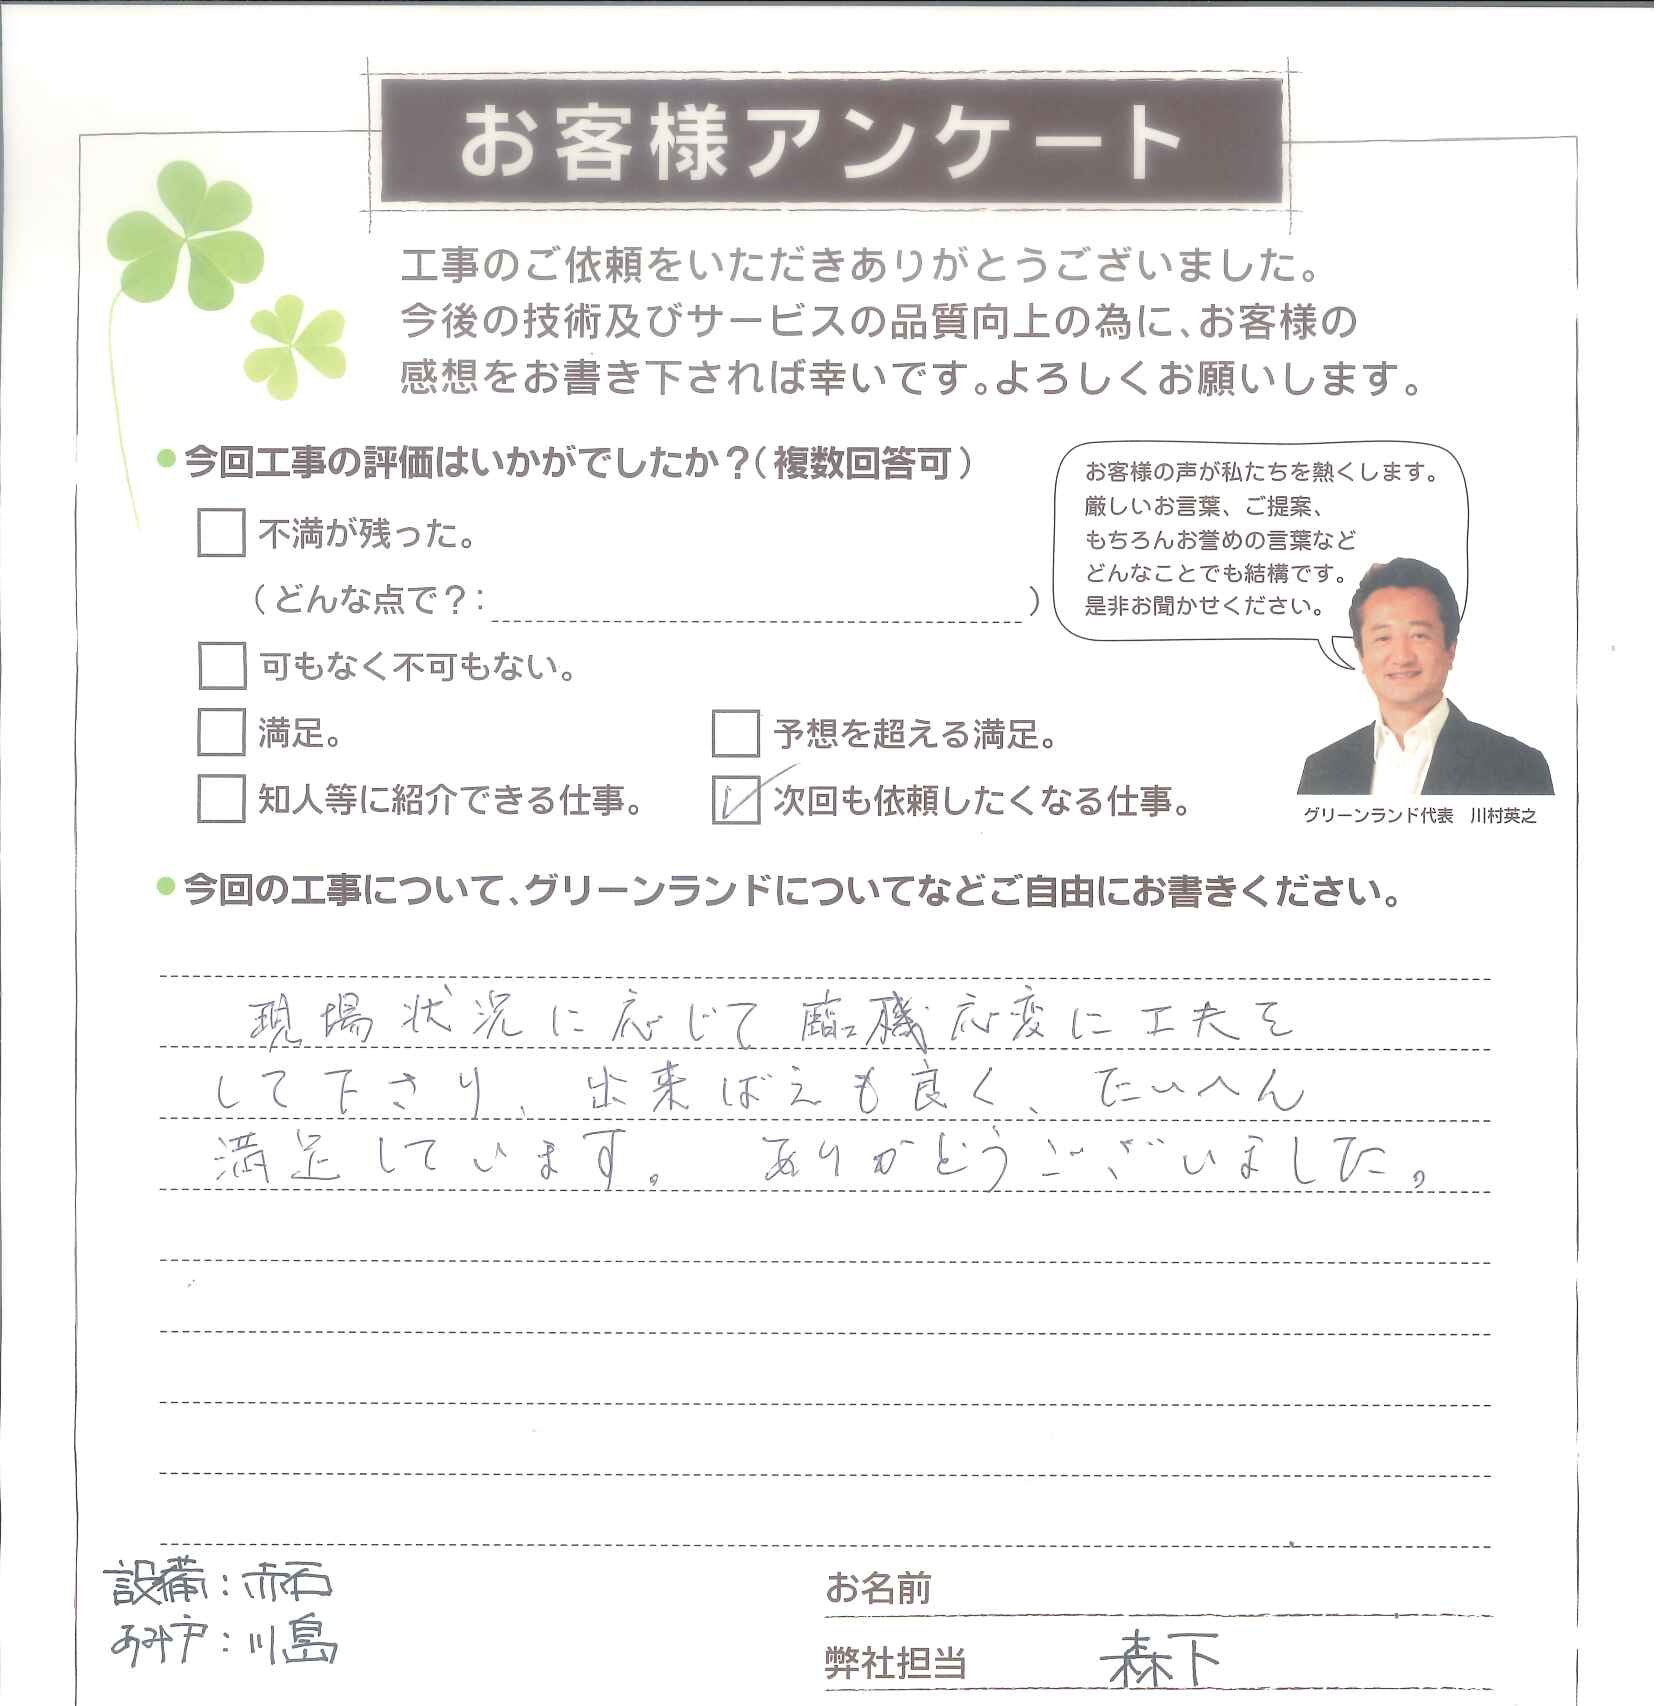 お客様アンケート
工事のご依頼をいただきありがとうございました。
今後の技術及びサービスの品質向上の為に、お客様の
感想をお書き下されば幸いです。よろしくお願いします。
今回工事の評価はいかがでしたか？（複数回答可）
不満が残った。
（どんな点で？：　）
可もなく不可もない。
満足。
予想を超える満足。
知人等に紹介できる仕事。
次回も依頼したくなる仕事。
お客様の声が私たちを熱くします。
厳しいお言葉、ご提案、
もちろんお誉めの言葉など
どんなことでも結構です。
是非お聞かせください。
グリーンランド代表　川村英之
今回の工事について、グリーンランドについてなどご自由にお書きください。
現場状況に応じて臨機応変に工夫を
して下さり、出来ばえも良く、たいへん
満足しています。ありがとうございました。
設備：赤石
あみ戸：川島
お名前
弊社担当　森下